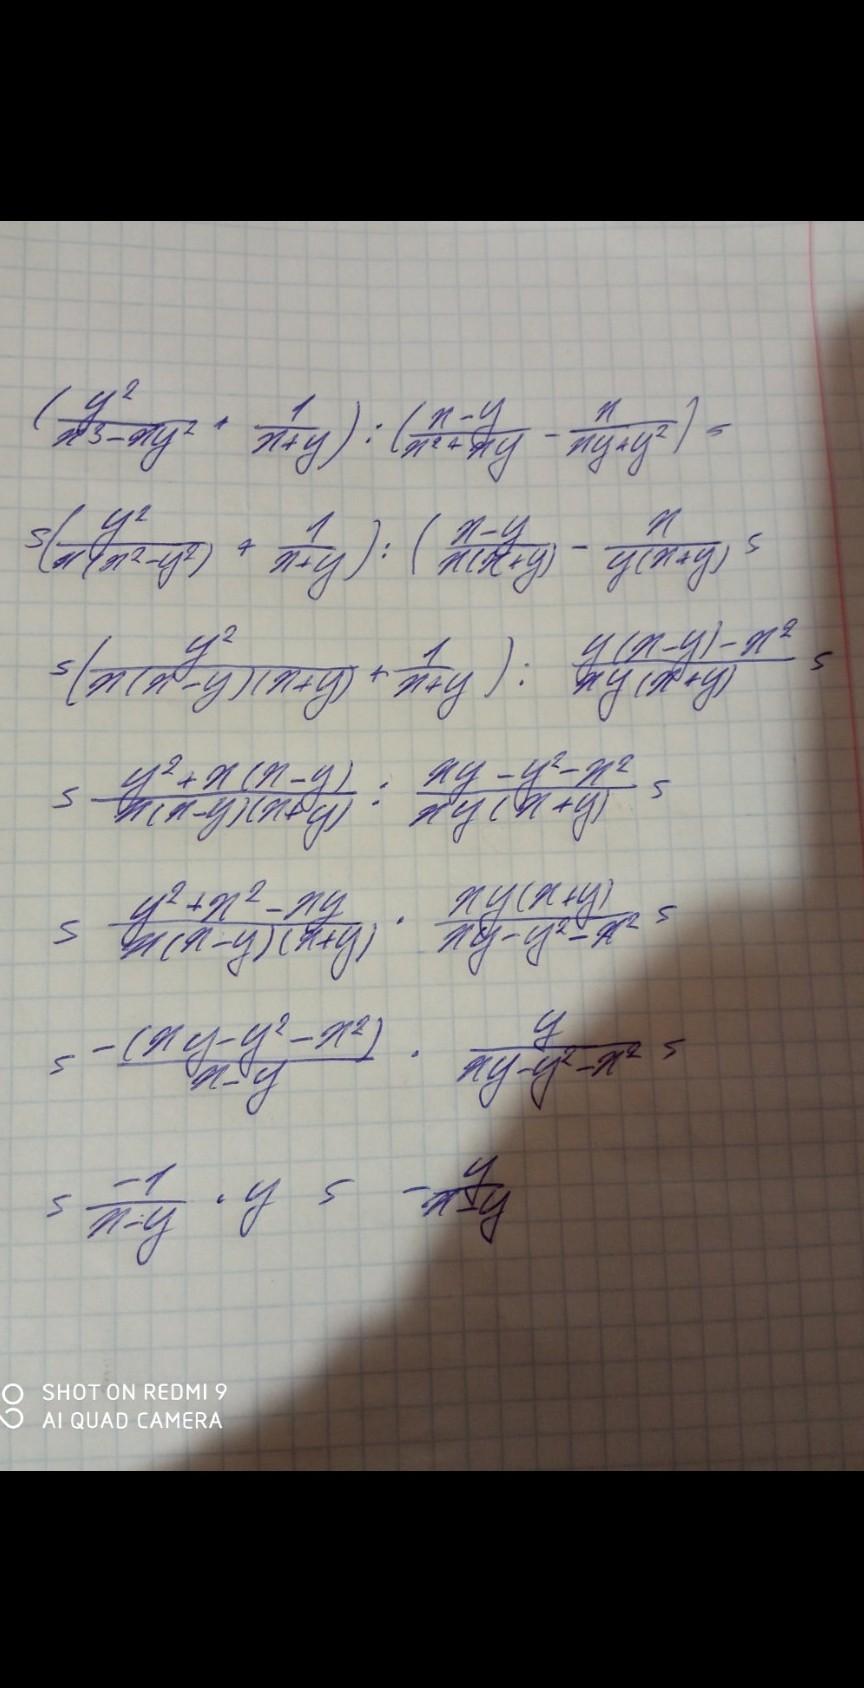 (y²/(x³-xy²) + 1/(x+y)) : ((x-y)/(x²+xy) - x/(xy+y²)) =
= (y²/(x(x²-y²)) + 1/(x+y)) : ((x-y)/(x(x+y)) - x/(y(x+y)) =
= (y²/(x(x-y)(x+y)) + 1/(x+y)) : (y(x-y)-x²)/(xy(x+y)) =
= (y²+x(x-y))/(x(x-y)(x+y)) : (xy-y²-x²)/(xy(x+y)) =
= (y²+x²-xy)/(x(x-y)(x+y)) · (xy(x+y))/(xy-y²-x²) =
= -(xy-y²-x²)/(x-y) · y/(xy-y²-x²) =
= -1/(x-y) · y = -y/(x-y)
SHOT ON REDMI 9
AI QUAD CAMERA